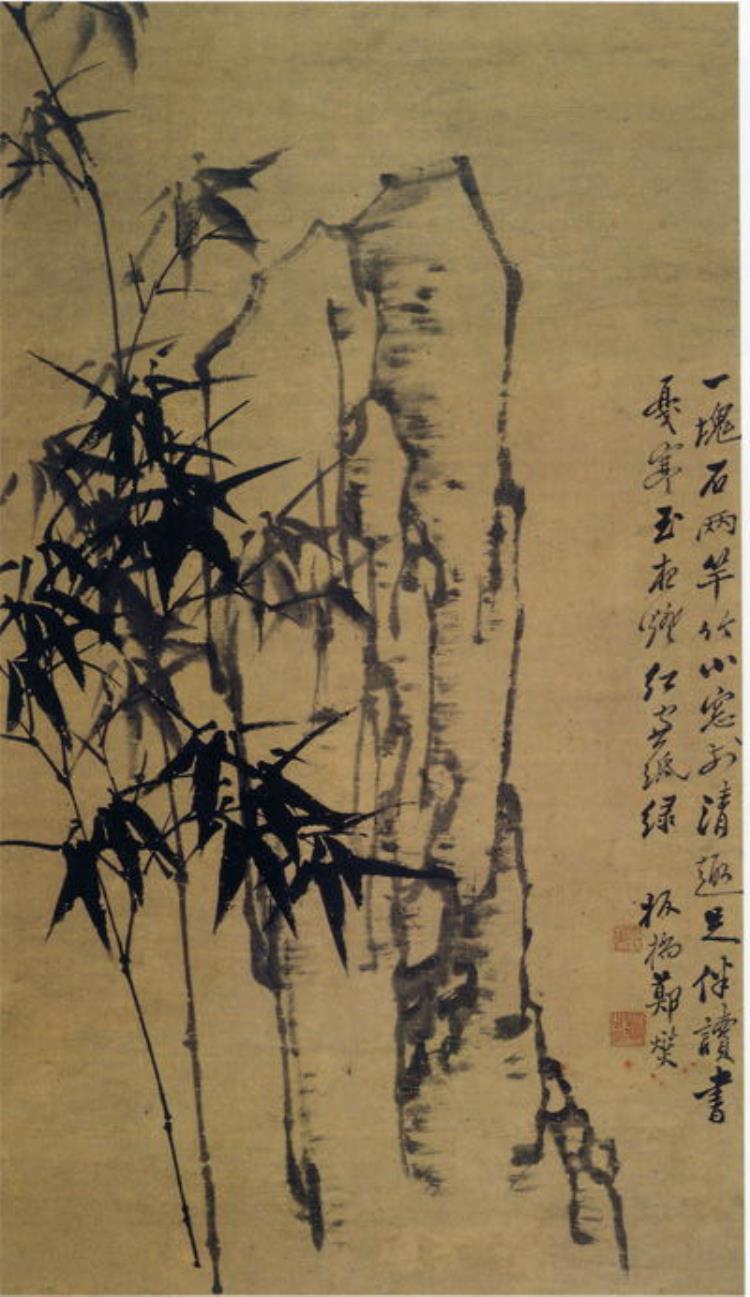 一塊石兩竿竹小窓前清趣足伴讀書
戛寒玉夜燈紅窗紙綠 板橋鄭燮